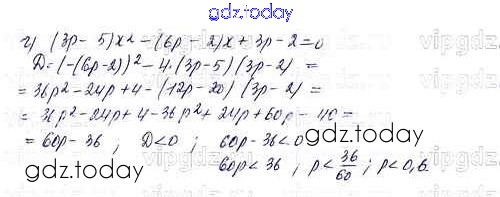 gdz.today
г) (3p - 5)x² - (6p - 2)x + 3p - 2 = 0
D = (-(6p-2))² - 4·(3p-5)(3p-2) =
= 36p² - 24p + 4 - (12p - 20)(3p - 2) =
= 36p² - 24p + 4 - 36p² + 24p + 60p - 40 =
= 60p - 36 ; D<0 ; 60p - 36 < 0
gdz.today
60p < 36 ; p < 36/60 ; p < 0,6
gdz.today